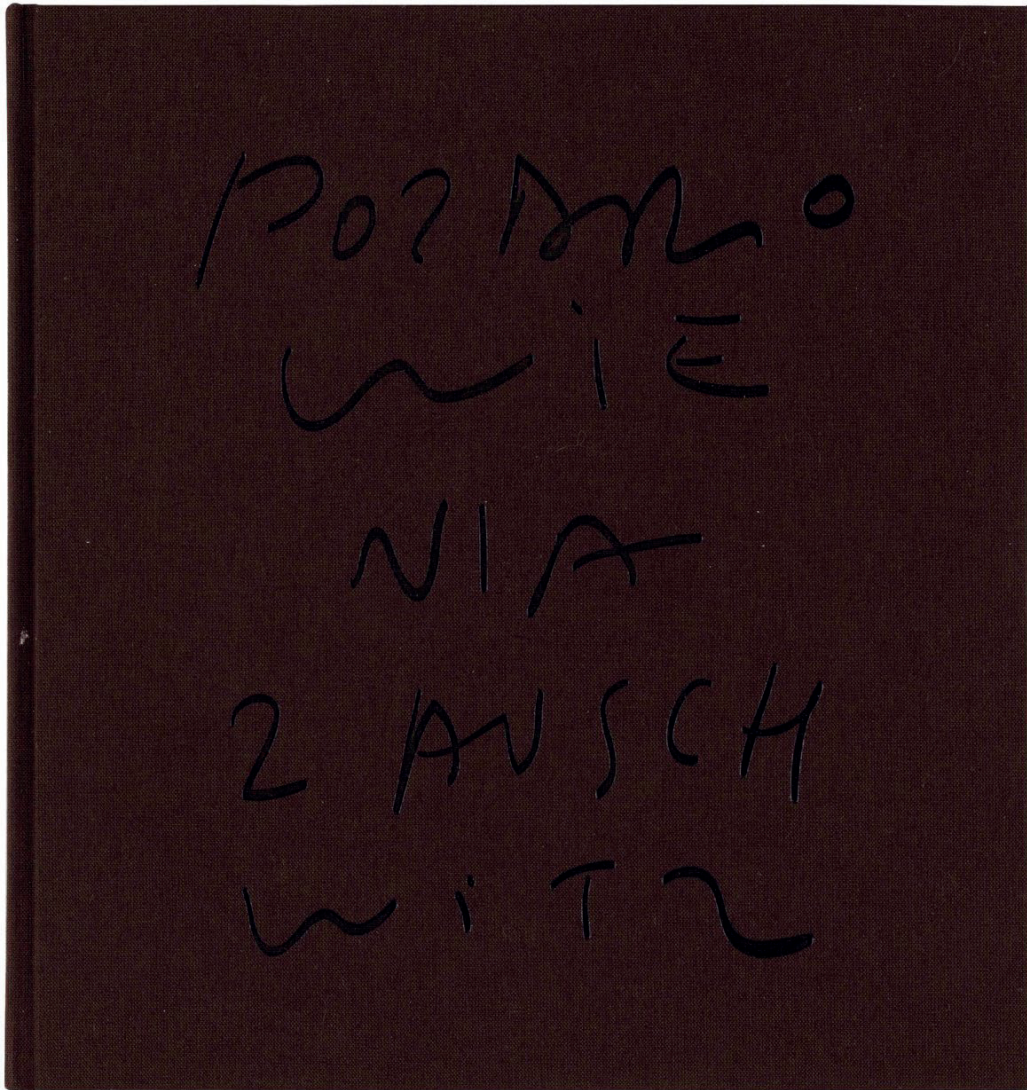 POZDRO
WIE
NIA
Z AUSCH
WiTZ